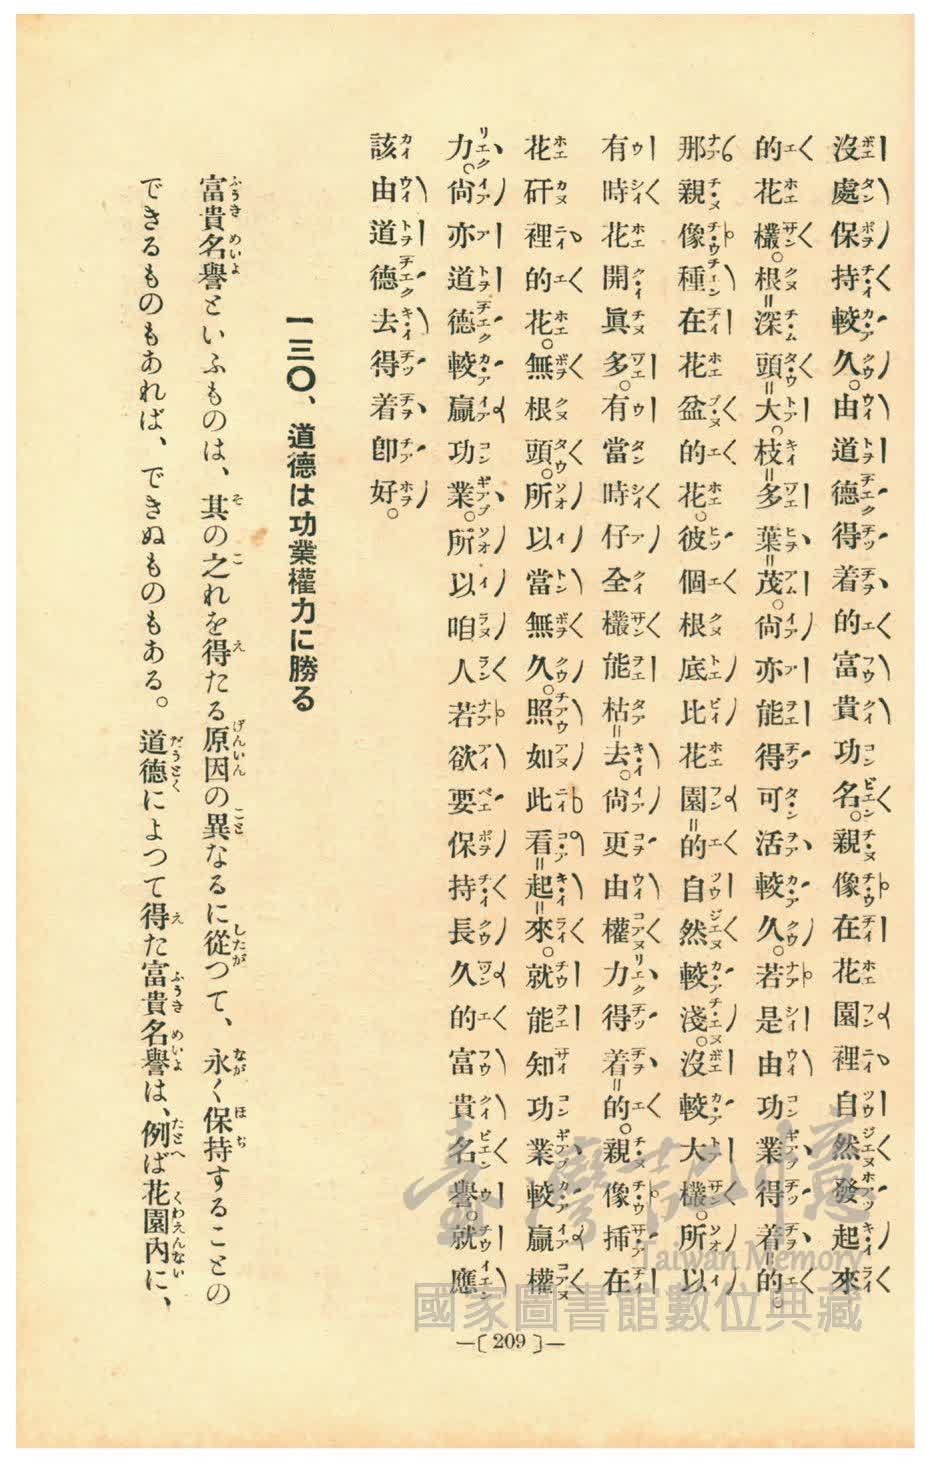 沒處保持較久。由道德得着的富貴功名。親像在花園裡自然發起來
的花欉。根深頭大。枝多葉茂。尙亦能得可活較久。若是由功業得着的。
那親像種在花盆的花。彼個根底比花園的自然較淺。沒較大欉。所以
有時花開眞多。有當時仔全欉能枯去。尙更由權力得着的。親像揷在
花矸裡的花。無根頭。所以當無久。照如此看起來。就能知功業較贏權
力。尙亦道德較贏功業。所以咱人若欲要保持長久的富貴名譽。就應
該由道德去得着卽好。
一三〇、道德は功業權力に勝る
富貴名譽といふものは、其の之れを得たる原因の異なるに從つて、永く保持することの
できるものもあれば、できぬものもある。道德によつて得た富貴名譽は、例ば花園内に、
—〔209〕—
臺灣記憶
Taiwan Memory
國家圖書館數位典藏